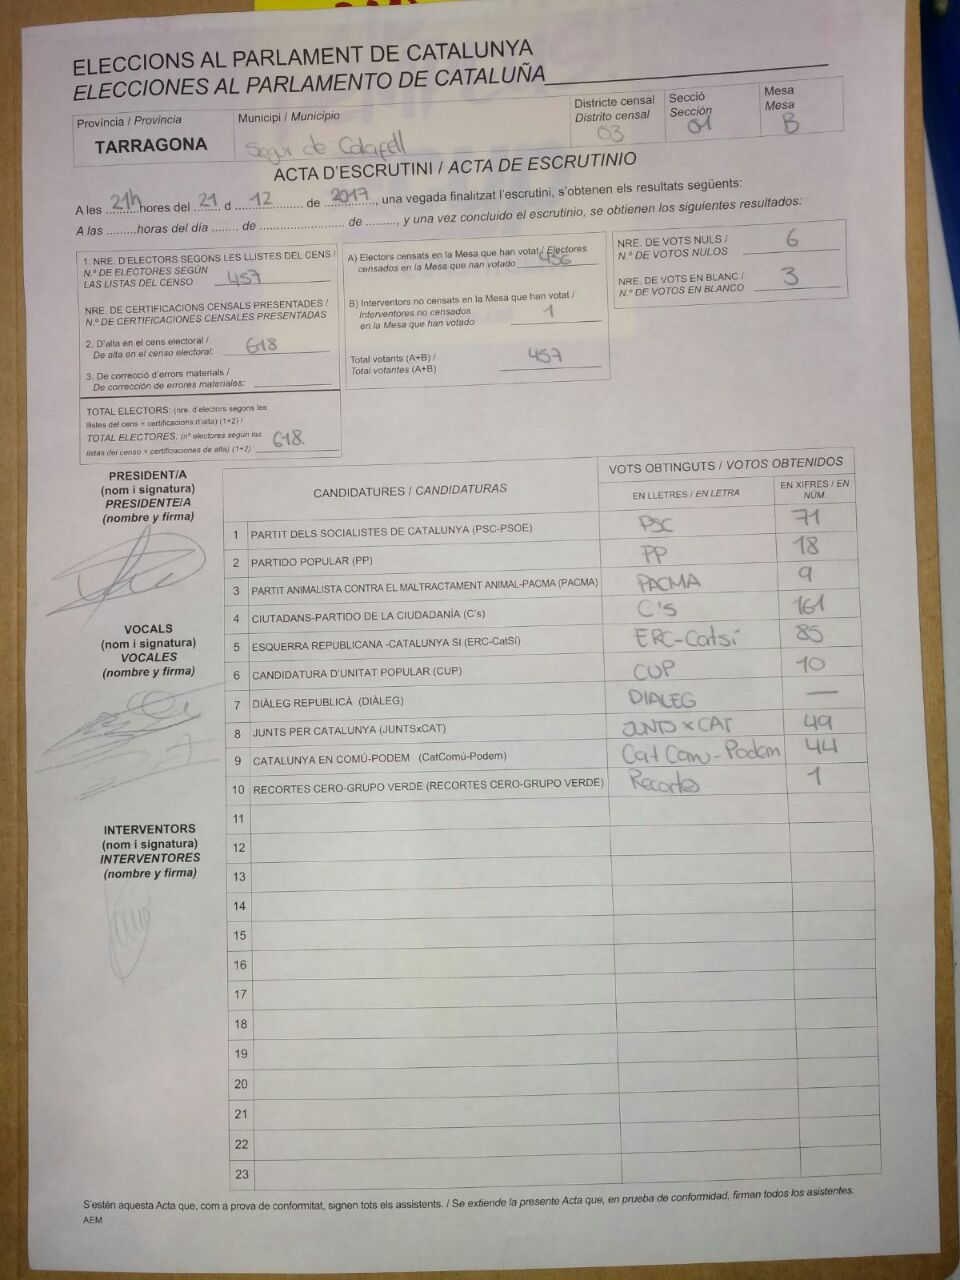 ELECCIONS AL PARLAMENT DE CATALUNYA
ELECCIONES AL PARLAMENTO DE CATALUÑA
Província / Provincia
TARRAGONA
Municipi / Municipio
Segur de Calafell
Districte censal
Distrito censal
03
Secció
Sección
01
Mesa
Mesa
B
ACTA D'ESCRUTINI / ACTA DE ESCRUTINIO
A les 21h hores del 21 d 12 de 2017, una vegada finalitzat l'escrutini, s'obtenen els resultats següents:
A las .........horas del día ........ de ......................... de ........., y una vez concluido el escrutinio, se obtienen los siguientes resultados:
1. NRE. D'ELECTORS SEGONS LES LLISTES DEL CENS /
N.º DE ELECTORES SEGÚN
LAS LISTAS DEL CENSO 457
NRE. DE CERTIFICACIONS CENSALS PRESENTADES /
N.º DE CERTIFICACIONES CENSALES PRESENTADAS
2. D'alta en el cens electoral /
De alta en el censo electoral: 618
3. De correcció d'errors materials /
De corrección de errores materiales:
TOTAL ELECTORS: (nre. d'electors segons les
llistes del cens + certificacions d'alta) (1+2) /
TOTAL ELECTORES: (nº electores según las
listas del censo + certificaciones de alta) (1+2) 618.
A) Electors censats en la Mesa que han votat / Electores
censados en la Mesa que han votado 456
B) Interventors no censats en la Mesa que han votat /
Interventores no censados
en la Mesa que han votado 1
Total votants (A+B) /
Total votantes (A+B) 457
NRE. DE VOTS NULS /
N.º DE VOTOS NULOS 6
NRE. DE VOTS EN BLANC /
N.º DE VOTOS EN BLANCO 3
PRESIDENT/A
(nom i signatura)
PRESIDENTE/A
(nombre y firma)
VOCALS
(nom i signatura)
VOCALES
(nombre y firma)
INTERVENTORS
(nom i signatura)
INTERVENTORES
(nombre y firma)
CANDIDATURES / CANDIDATURAS
VOTS OBTINGUTS / VOTOS OBTENIDOS
EN LLETRES / EN LETRA
EN XIFRES / EN NÚM.
1 PARTIT DELS SOCIALISTES DE CATALUNYA (PSC-PSOE) PSC 71
2 PARTIDO POPULAR (PP) PP 18
3 PARTIT ANIMALISTA CONTRA EL MALTRACTAMENT ANIMAL-PACMA (PACMA) PACMA 9
4 CIUTADANS-PARTIDO DE LA CIUDADANÍA (C's) C's 161
5 ESQUERRA REPUBLICANA -CATALUNYA SI (ERC-CatSí) ERC-Catsí 85
6 CANDIDATURA D'UNITAT POPULAR (CUP) CUP 10
7 DIÀLEG REPUBLICÀ (DIÀLEG) DIALEG —
8 JUNTS PER CATALUNYA (JUNTSxCAT) JUNTS x CAT 49
9 CATALUNYA EN COMÚ-PODEM (CatComú-Podem) Cat Comu-Podem 44
10 RECORTES CERO-GRUPO VERDE (RECORTES CERO-GRUPO VERDE) Recortes 1
11
12
13
14
15
16
17
18
19
20
21
22
23
S'estén aquesta Acta que, com a prova de conformitat, signen tots els assistents. / Se extiende la presente Acta que, en prueba de conformidad, firman todos los asistentes.
AEM